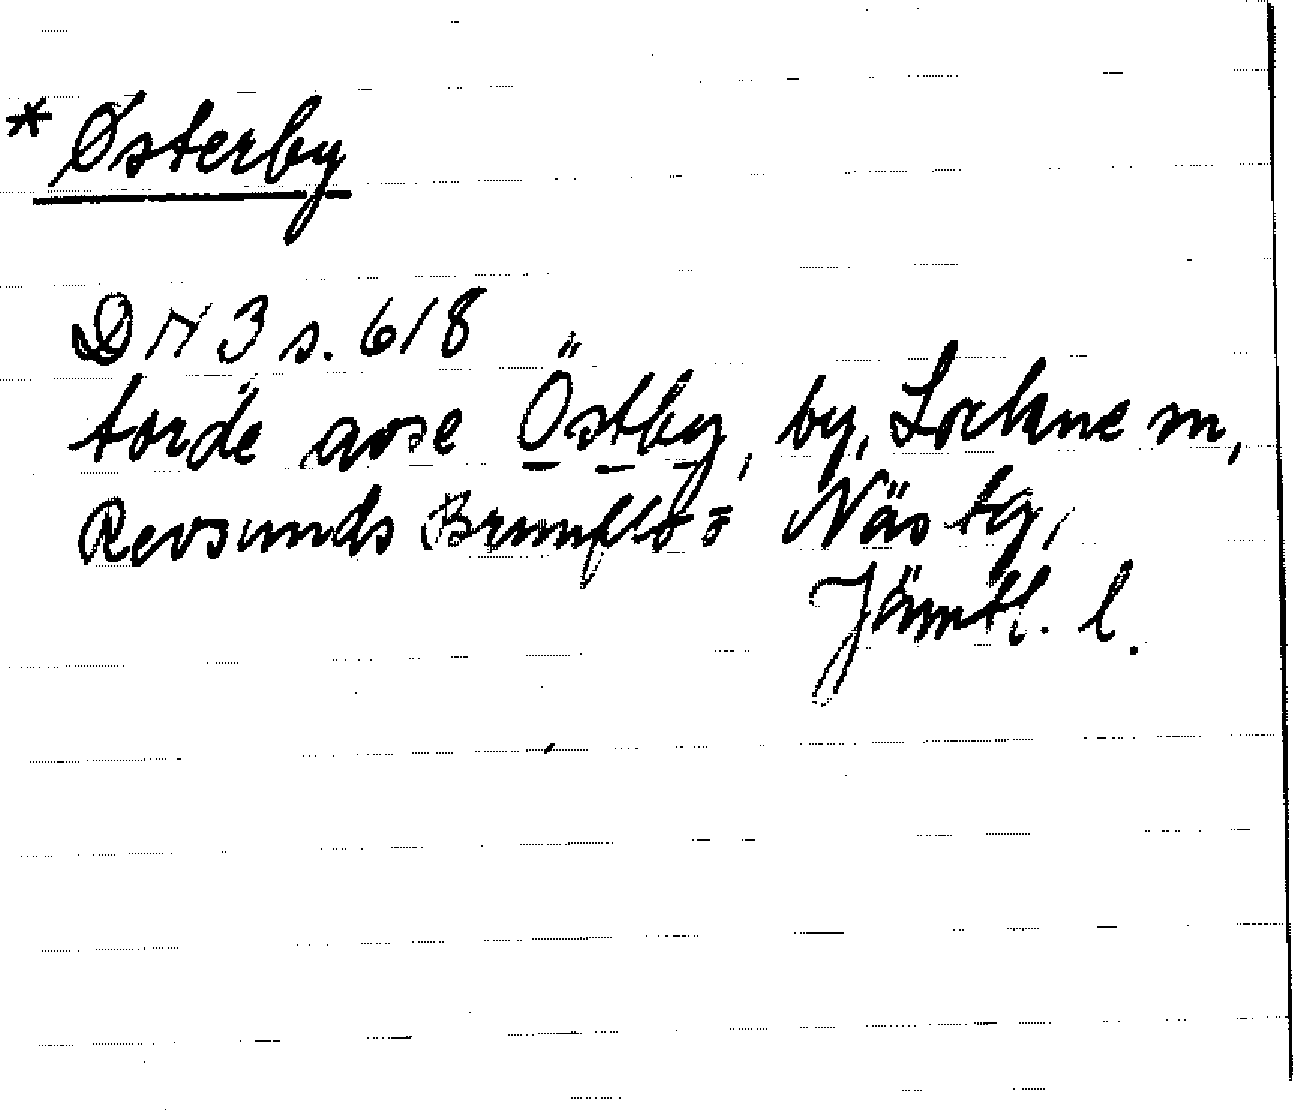 * Østerby
DN 3 s. 618
torde avse Östby, by, Lockne sn,
Revsunds Brunflo o Näs tg,
Jämtl. l.